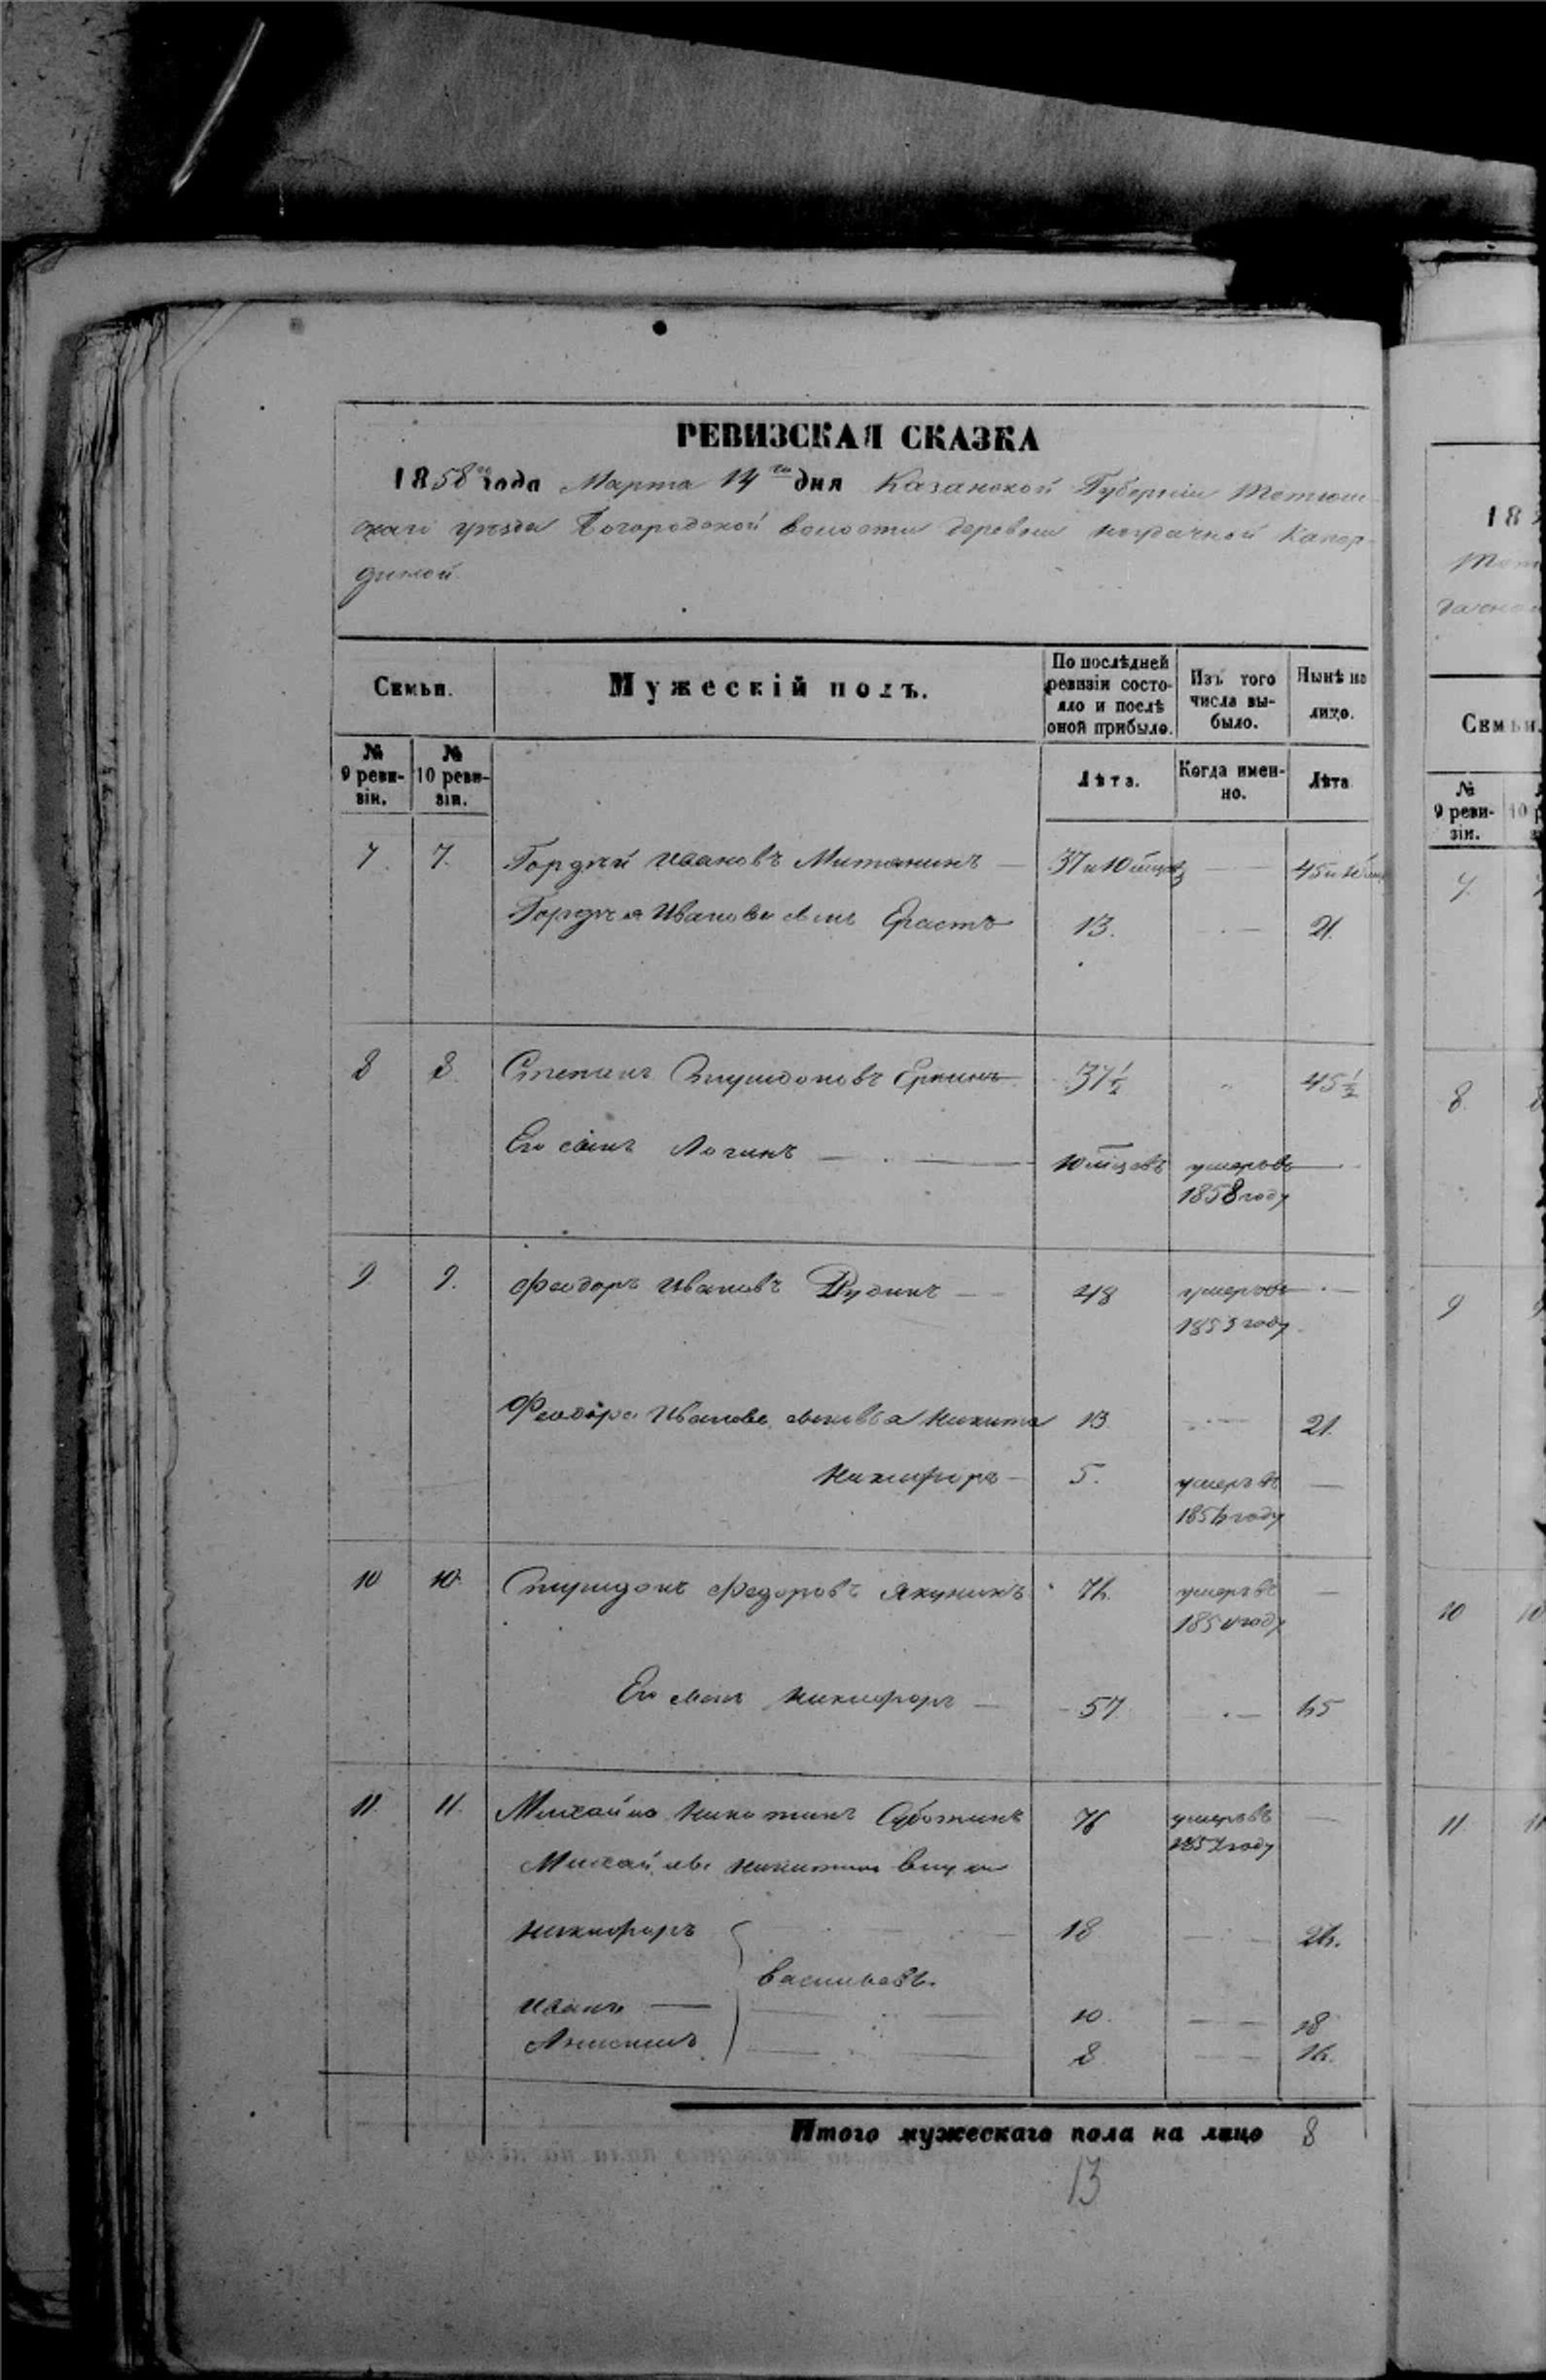 РЕВИЗСКАЯ СКАЗКА
1858го года Марта 14го дня Казанской Губерніи Тетюш-
скаго уѣзда Богородской волости деревни
Семьи.
Мужескій полъ.
По послѣдней ревизіи состояло и послѣ оной прибыло.
Изъ того числа выбыло.
Нынѣ на лицо.
№ 9 ревизіи.
№ 10 ревизіи.
Лѣта.
Когда именно.
Лѣта
7 7. Гордѣй Ивановъ Митанинъ 37 и 10 мцовъ 45 и 10
Гордѣя Иванова сынъ Ерастъ 13. 21.
8 8. Степанъ Спиридоновъ Еркинъ 37½ 45½
Его сынъ Логинъ 10 мцовъ умеръ въ
1858 году
9 9. Феодоръ Ивановъ Рудинъ 48 умеръ въ
1853 году
Феодора Иванова сыновья Никита 13. 21.
Никифоръ 5. умеръ въ
году
10 10. Спиридонъ Федоровъ Якунинъ умеръ въ
году
Его сынъ Никифоръ 57 65
11. 11. Михайло Никитинъ Суботинъ 76 умеръ въ
1857 году
Михайлы Никитина внуки
Никифоръ 18 26.
Васильевы.
Иванъ 10. 18
8. 16.
Итого мужескаго пола на лицо 8
13
18
Семьи.
№ 9 ревизіи.
10
7.
8.
9
10 10
11 11